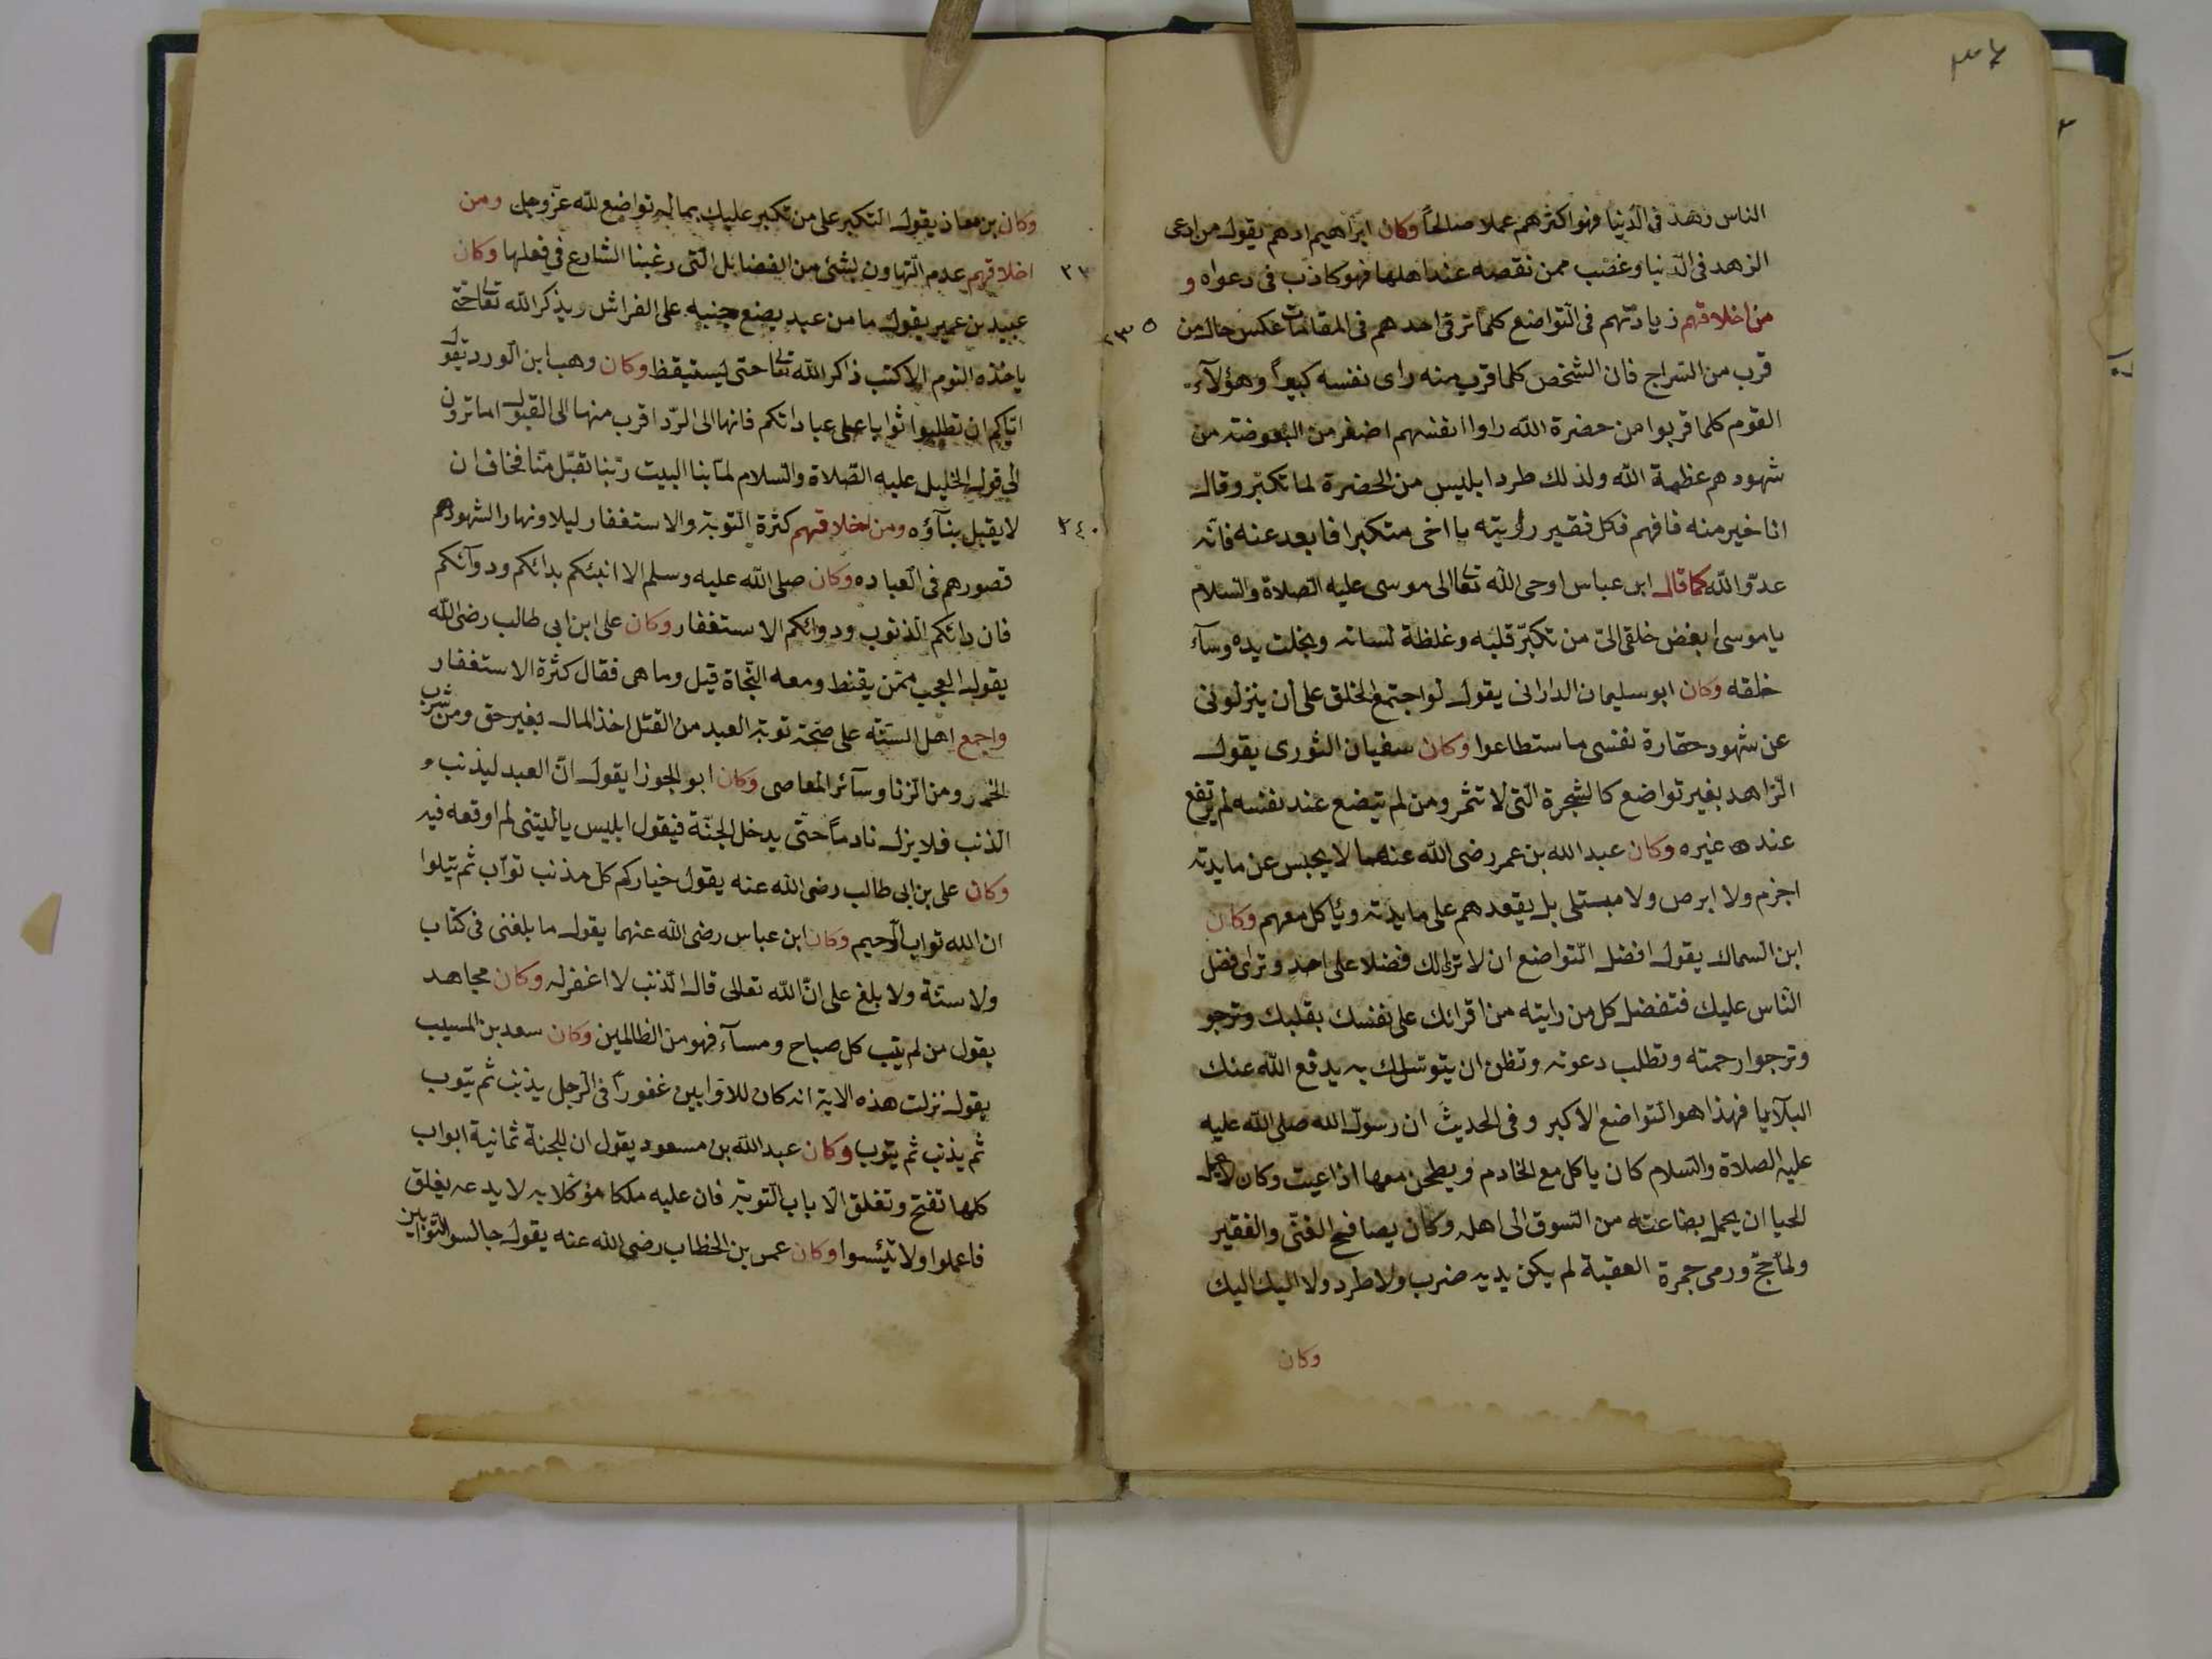 ٣٤
الناس زهد في الدنيا فهو اكثرهم عملا صالحاً وكان ابراهيم ادهم يقول من ادعى
الزهد في الدنيا وغضب ممن نقصه عند اهلها فهو كاذب في دعواه و
من اخلاقهم زيادتهم في التواضع كلما ترقى احدهم في المقامات عكس حال من
قرب من السراج فان الشخص كلما قرب منه راى نفسه كبيراً وهؤلآء
القوم كلما قربوا من حضرة الله راوا انفسهم اصغر من البعوضة من
شهودهم عظمة الله ولذلك طرد ابليس من الحضرة لما تكبّر وقال
انا خير منه فافهم فكل فقير رأيته يا اخى متكبرا فابعد عنه فانه
عدوّ الله كما قال ابن عباس اوحى الله تعا الى موسى عليه الصلاة والسلام
يا موسى ابغض خلقى الىّ من تكبّر قلبه وغلظة لسانه وبخلت يده وسآء
خلقه وكان ابو سليمان الدارانى يقول لو اجتمع الخلق على ان ينزلونى
عن شهود حقارة نفسى ما ستطاعوا وكان سفيان الثورى يقول
الزاهد بغير تواضع كالشجرة التى لا تثمر ومن لم يتضع عند نفسه لم يرتفع
عند غيره وكان عبد الله بن عمر رضى الله عنهما لا يحبس عن مايدته
اجزم ولا ابرص ولا مبتلى بل يقعدهم على مايدته ويأكل معهم وكان
ابن السماك يقول افضل التواضع ان لا ترى لك فضلا على احد وترى فضل
الناس عليك فتفضل كل من رايته من اقرانك على نفسك بقلبك وترجو
وترجوا رحمته وتطلب دعوته وتظن ان يتوسل لك به يدفع الله عنك
البلآيا فهذا هو التواضع الاكبر وفى الحديث ان رسول الله صلى الله عليه
عليه الصلاة والسلام كان ياكل مع الخادم ويطحن معها اذا عيت وكان لا يحمل
الحيا ان يحمل بضاعته من السوق الى اهله وكان يصافح الغنىّ والفقير
ولما حجّ ورمى جمرة العقبة لم يكن يديه ضرب ولا طرد ولا اليك اليك
وكان
٢٣٥
وكان بن معاذ يقول التكبر على من تكبر عليك بماله تواضع لله عزّ وجل ومن
اخلاقهم عدم التهاون بشئ من الفضايل التى رغبنا الشارع في فعلها وكان
عبيد بن عمير يقول ما من عبد يضع جنبه على الفراش ويذكر الله تعا حتى
ياخذه النوم الا كتب ذاكر الله تعا حتى ليستيقظ وكان وهب ابن الورد يقول
اياكم ان تطلبوا ثوابا على عباداتكم فانها الى الردّ اقرب منها الى القبول اما ترون
الى قول الخليل عليه الصّلاة والسلام لما بنا البيت ربّنا تقبّل منّا فخاف ان
لا يقبل بنآؤه ومن اخلاقهم كثرة التوبة والاستغفار ليلا ونهارا لشهودهم
٢٤٠
قصورهم فى العباده وكان صلى الله عليه وسلم الا انبئكم بدائكم ودوآئكم
فان دائكم الذنوب ودوائكم الاستغفار وكان على ابن ابي طالب رضى الله
يقول العجب ممّن يقنط ومعه النّجاة قيل وما هى فقال كثرة الاستغفار
واجمع اهل السنّه على صحّة توبة العبد من القتل اخذ المال بغير حق ومن شرب
الخمر ومن الزنا وسآئر المعاصى وكان ابو الجوزا يقول انّ العبد ليذنب
الذنب فلا يزل نادماً حتّى يدخل الجنّة فيقول ابليس يا ليتنى لم اوقعه فيه
وكان على بن ابى طالب رضى الله عنه يقول خياركم كل مذنب توآب ثم يتلوا
ان الله تواب الرحيم وكان ابن عباس رضى الله عنهما يقول ما بلغنى فى كتاب
ولا سنّة ولا بلغ على انّ الله تعالى قال الذنب لا اغفر له وكان مجاهد
يقول من لم يتب كل صباح ومسآء فهو من الظالمين وكان سعد بن المسيب
يقول نزلت هذه الاية انه كان للاوابين غفوراً فى الرجل يذنب ثم يتوب
ثم يذنب ثم يتوب وكان عبد الله بن مسعود يقول ان للجنة ثمانية ابواب
كلها تفتح وتغلق الا باب التوبة فان عليه ملكا مؤكلا به لا يدعه يغلق
فاعملوا ولا تيئسوا وكان عمر بن الخطاب رضى الله عنه يقول جالسوا التوّابين